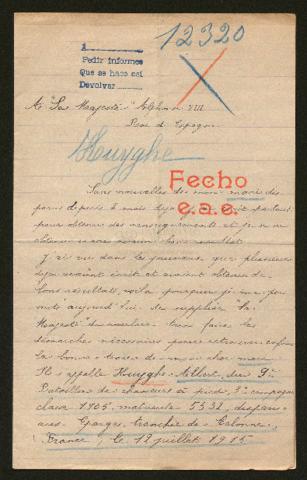 12320
A
Pedir informes
Que se hace así
Devolver
A "Sa Majesté" Alphonse XIII
Roi d'Espagne
Huyghe
Fecho
e.a.e.
Sans nouvelles de mon mari de
puis 2 mois déjà
pour obtenir des renseignements et je n'ai
obtenu aucun bon résultat
J'ai vu dans les journaux que plusieurs
déjà avaient écrit et avaient obtenu de
bons résultats, voilà pourquoi je me per
mets aujourd'hui de supplier "Sa
Majesté" de vouloir bien faire les
démarches nécessaires pour retrouver enfin
la bonne trace de mon cher mari
Il s'appelle Huyghe Albert, du 9e
Bataillon de chasseurs à pied, 3e compagnie
classe 1905, matricule 5532, disparu
aux Eparges, tranchée de Calonne,
France, le 12 juillet 1915